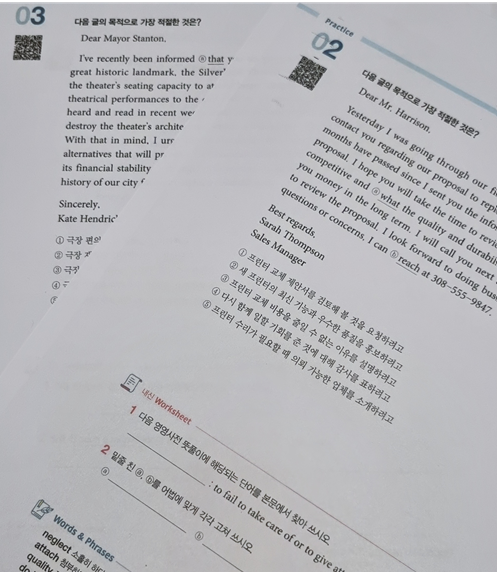 03
다음 글의 목적으로 가장 적절한 것은?
Dear Mayor Stanton,
I've recently been informed ⓐthat
great historic landmark, the Silver
the theater's seating capacity to
theatrical performances to the
heard and read in recent
destroy the theater's
With that in mind, I
alternatives that will
its financial stability
history of our city
Sincerely,
Kate
① 극장
② 극장
③
④
⑤
Practice
02
다음 글의 목적으로 가장 적절한 것은?
Dear Mr. Harrison,
Yesterday I was going through our
contact you regarding our proposal to
months have passed since I sent you the
proposal. I hope you will take the time to
competitive and ⓐwhat the quality and
you money in the long term. I will call you next
to review the proposal. I look forward to doing
questions or concerns, I can ⓑreach at 308-555-9847.
Best regards,
Sarah Thompson
Sales Manager
① 프린터 교체 제안서를 검토해 볼 것을 요청하려고
② 새 프린터의 최신 기능과 우수한 품질을 홍보하려고
③ 프린터 교체 비용을 줄일 수 없는 이유를 설명하려고
④ 다시 함께 일할 기회를 준 것에 대해 감사를 표하려고
⑤ 프린터 수리가 필요할 때 의뢰 가능한 업체를 소개하려고
내신 Worksheet
1 다음 영영사전 뜻풀이에 해당되는 단어를 본문에서 찾아 쓰시오.
: to fail to take care of or to give
2 밑줄 친 ⓐ, ⓑ를 어법에 맞게 각각 고쳐 쓰시오.
ⓐ ⓑ
Words & Phrases
neglect 소홀히
attach
quality